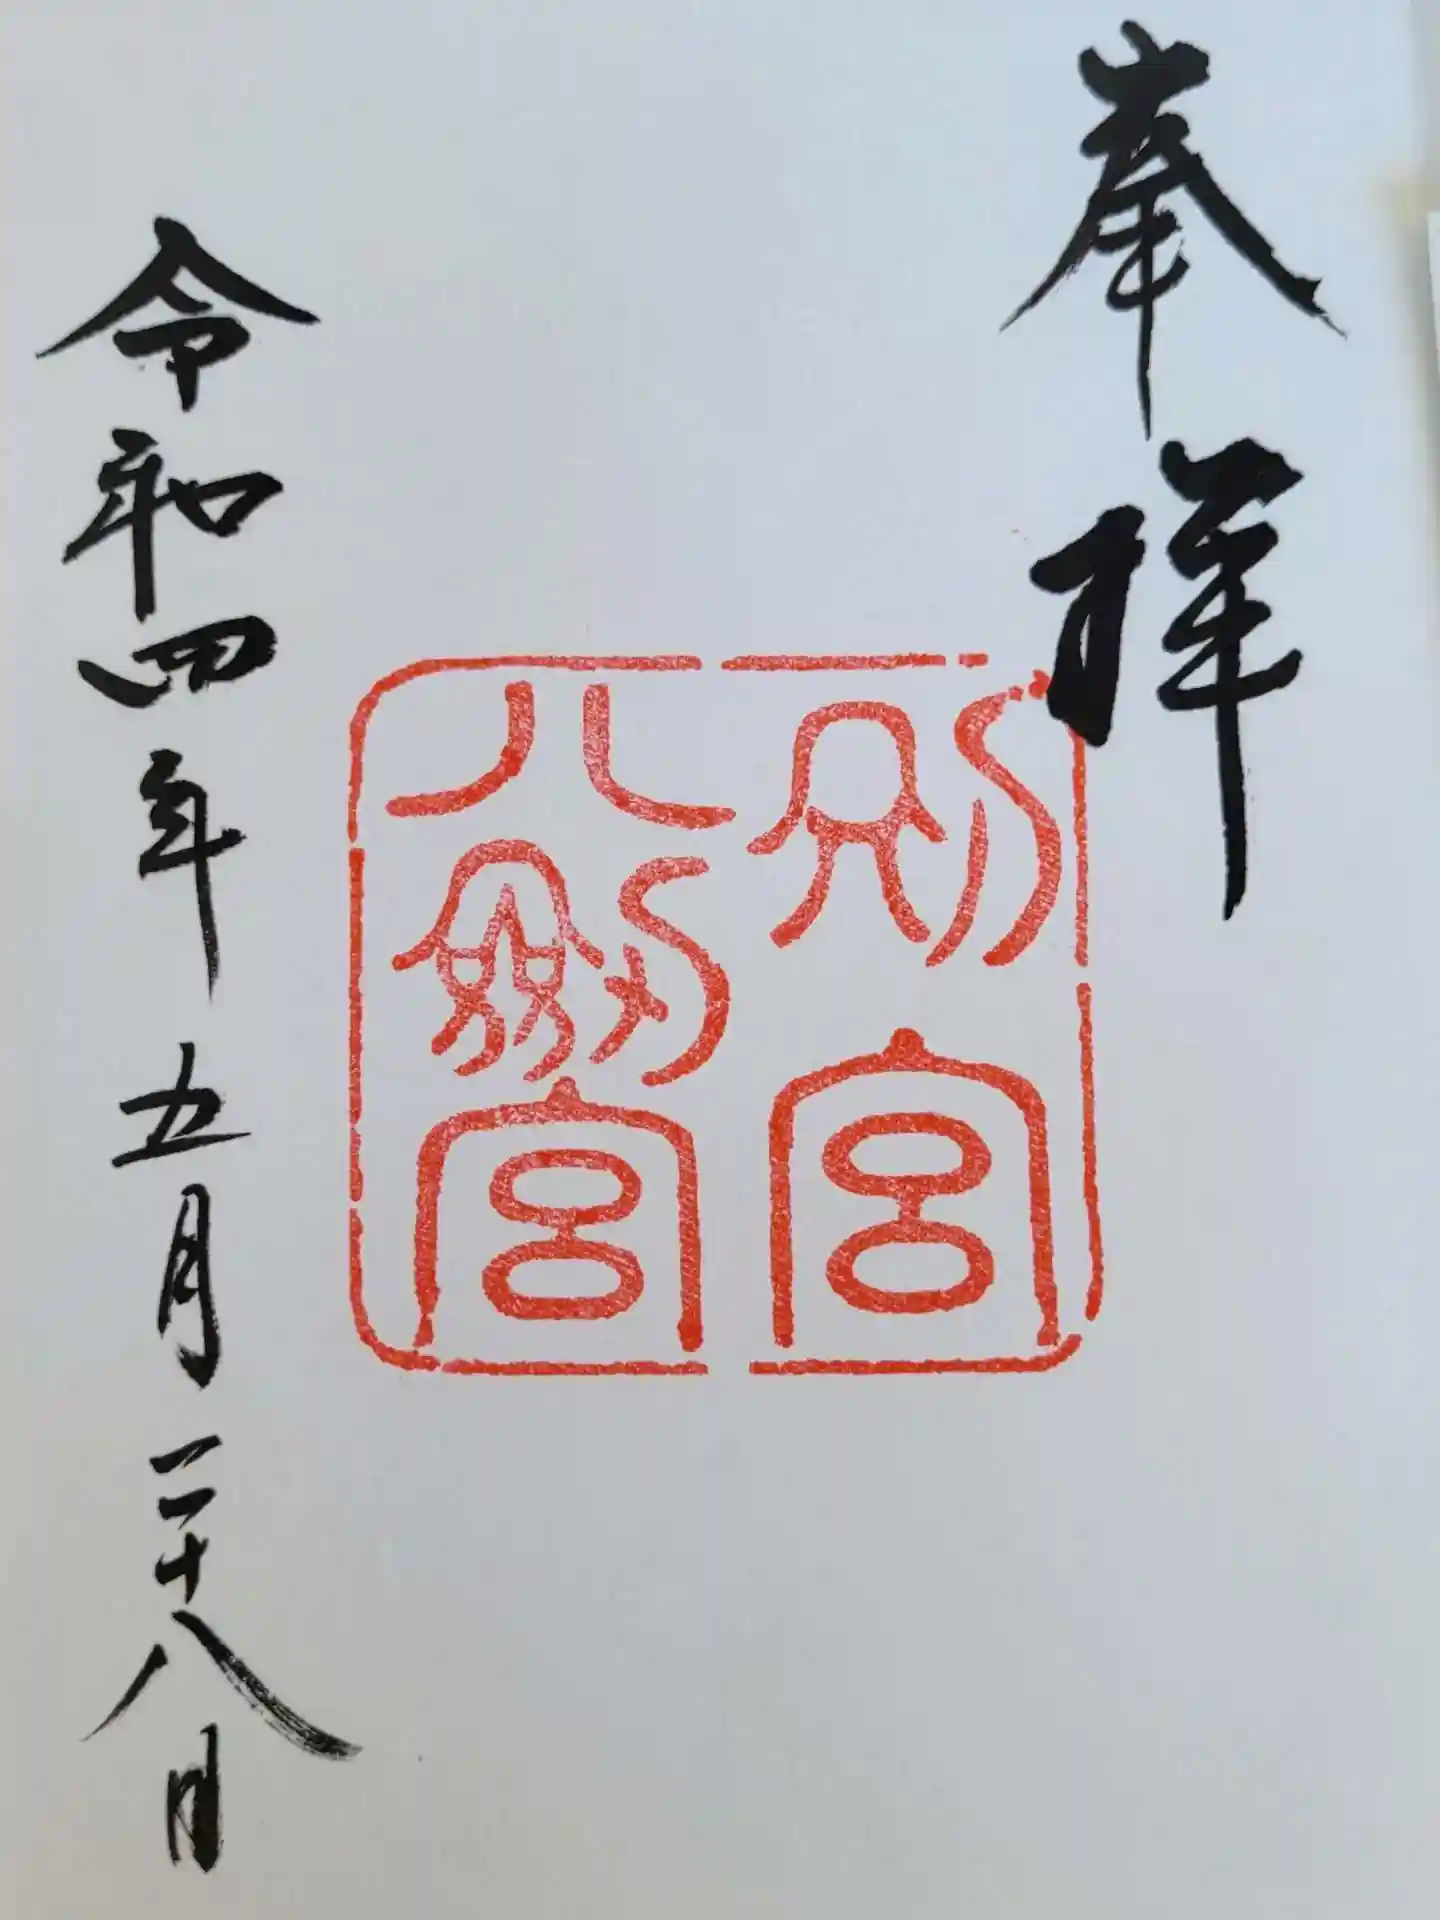 奉拝
別宮
八劔宮
令和四年五月二十八日